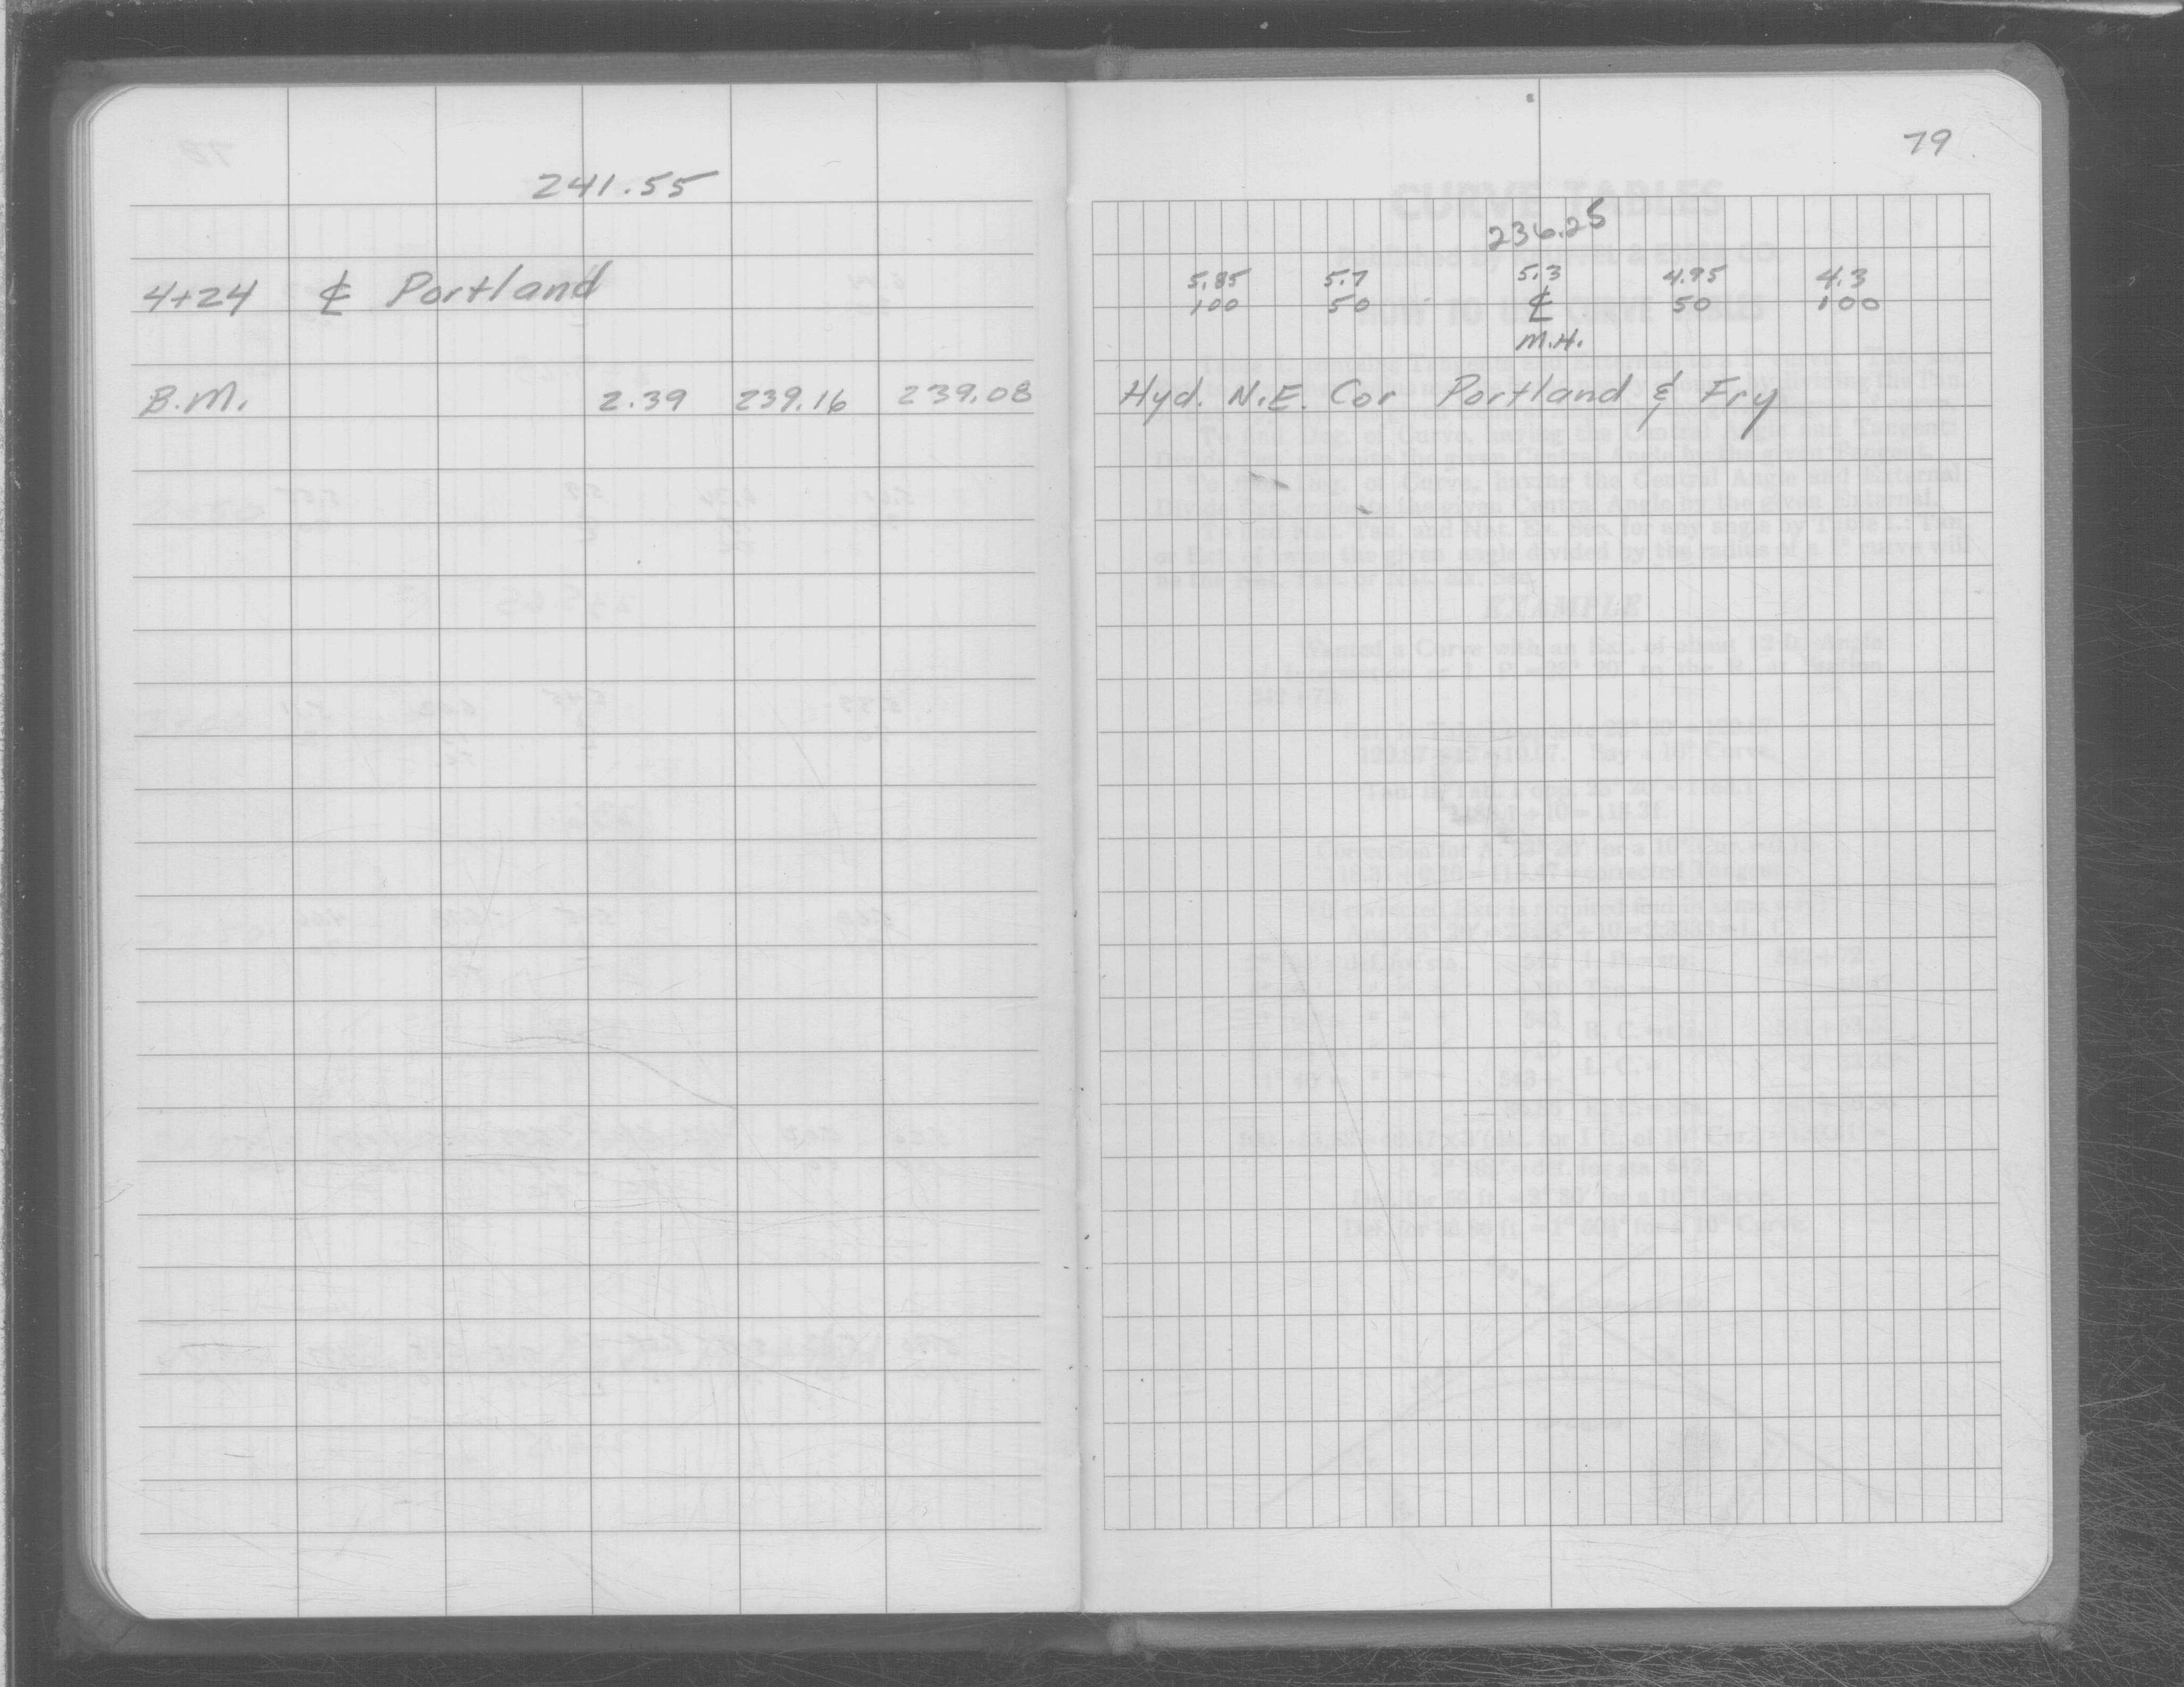 241.55
4+24 ℄ Portland
B.M. 2.39 239.16 239.08
79
236.25
5.85 5.7 5.3 4.95 4.3
100 50 ℄ 50 100
M.H.
Hyd. N.E. Cor Portland & Fry